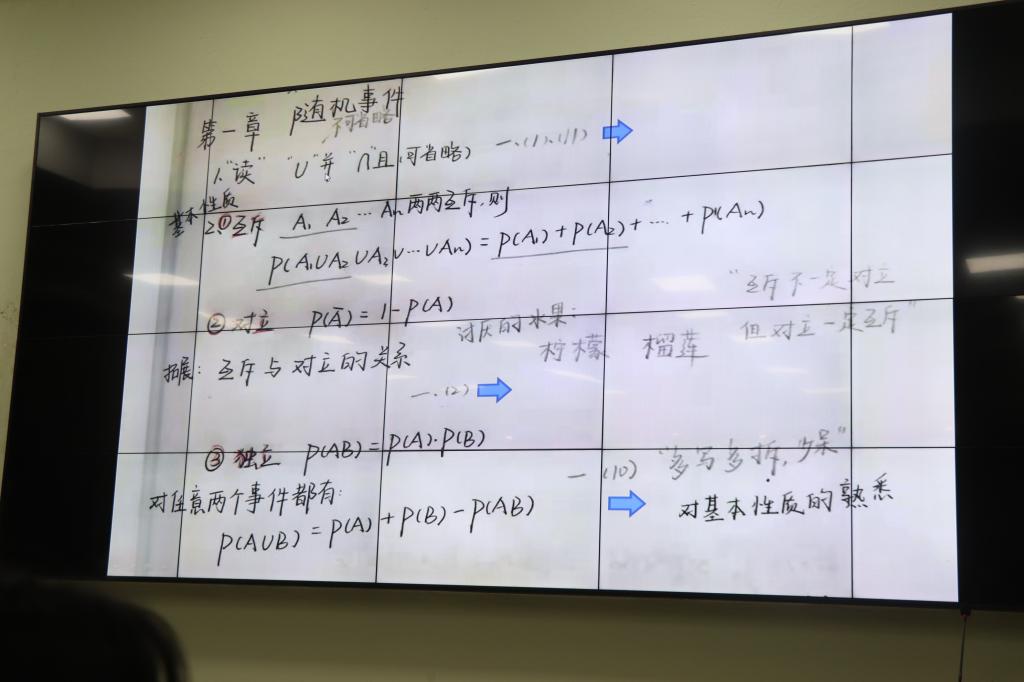 第一章 随机事件
不可省略
1、"读" "∪"并 "∩"且(可省略) 一、(1)、(11)
基本性质
2、①互斥 A₁ A₂ … Aₙ 两两互斥,则
P(A₁∪A₂∪A₂∪…∪Aₙ) = P(A₁) + P(A₂) + … + P(Aₙ)
"互斥不一定对立
② 对立 P(Ā) = 1 - P(A)
但对立一定互斥"
讨厌的水果:
柠檬 榴莲
拓展: 互斥与对立的关系
一、(2)
③ 独立 P(AB) = P(A)·P(B)
一 (10) "多写多拆,少呆"
对任意两个事件都有:
对基本性质的熟悉
P(A∪B) = P(A) + P(B) - P(AB)